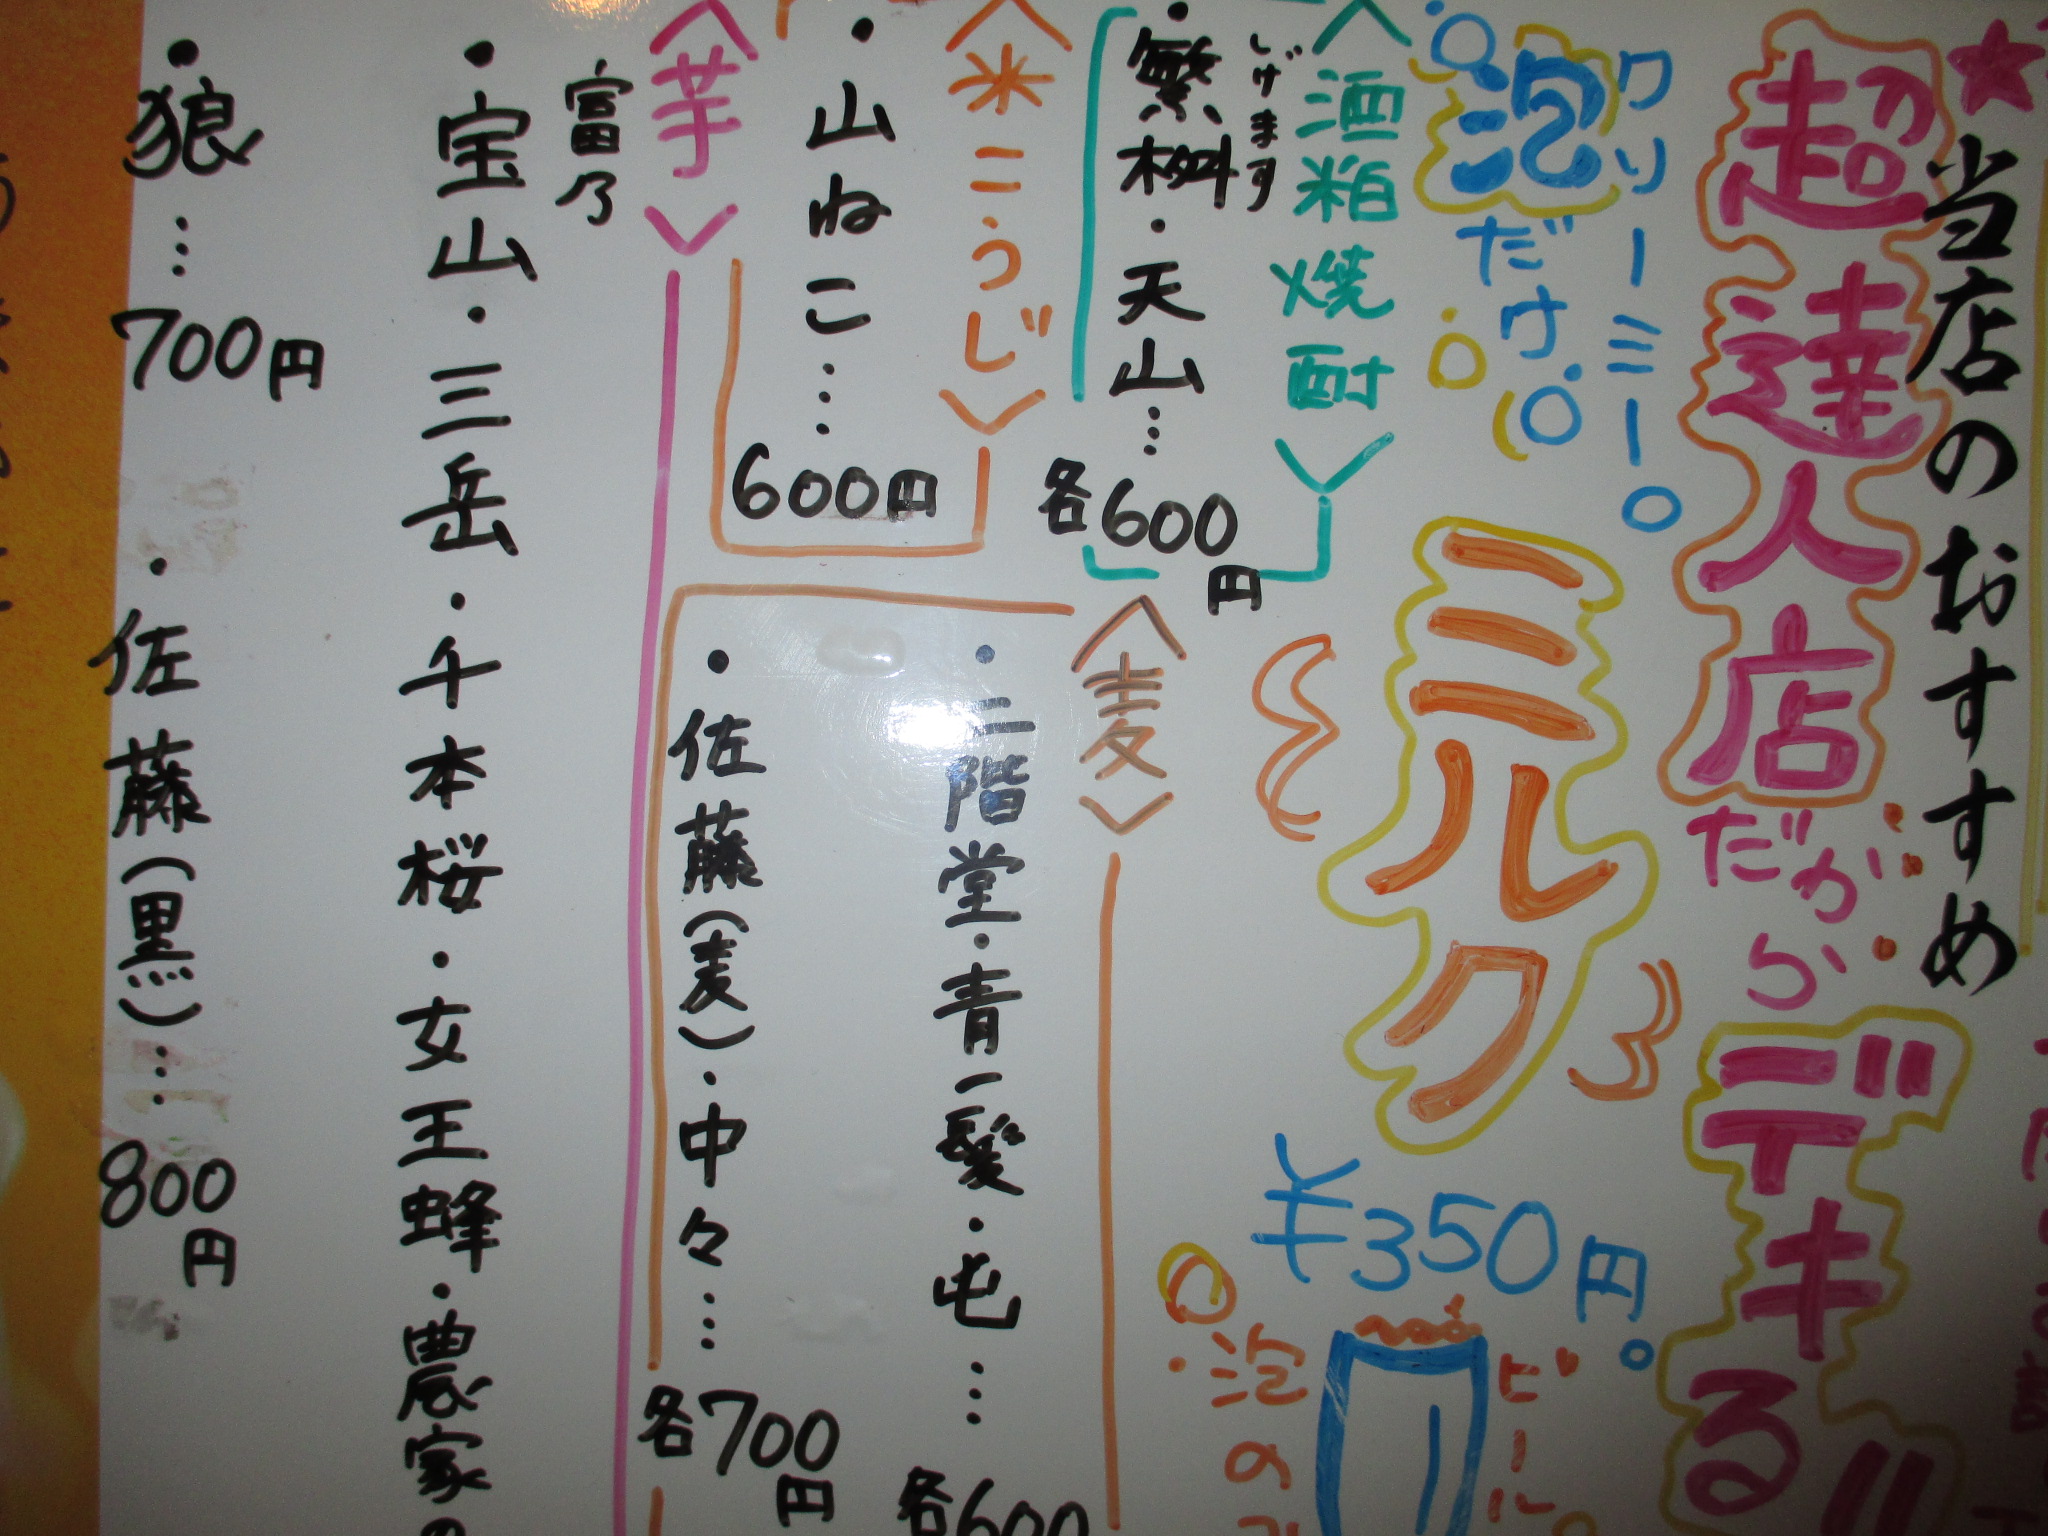 ★当店のおすすめ
超達人店だから
デキる!!
クリーミー。
泡だけ。
ミルク
¥350円
ビール
泡の
<酒粕焼酎>
しげます
・繁桝・天山…
各600円
<米こうじ>
・山ねこ……
600円
<麦>
・二階堂・青一髪・屯……
各600
・佐藤(麦)・中々……
各700円
<芋>
富乃
・宝山・三岳・千本桜・女王蜂・農家の
・狼…700円
・佐藤(黒)……800円